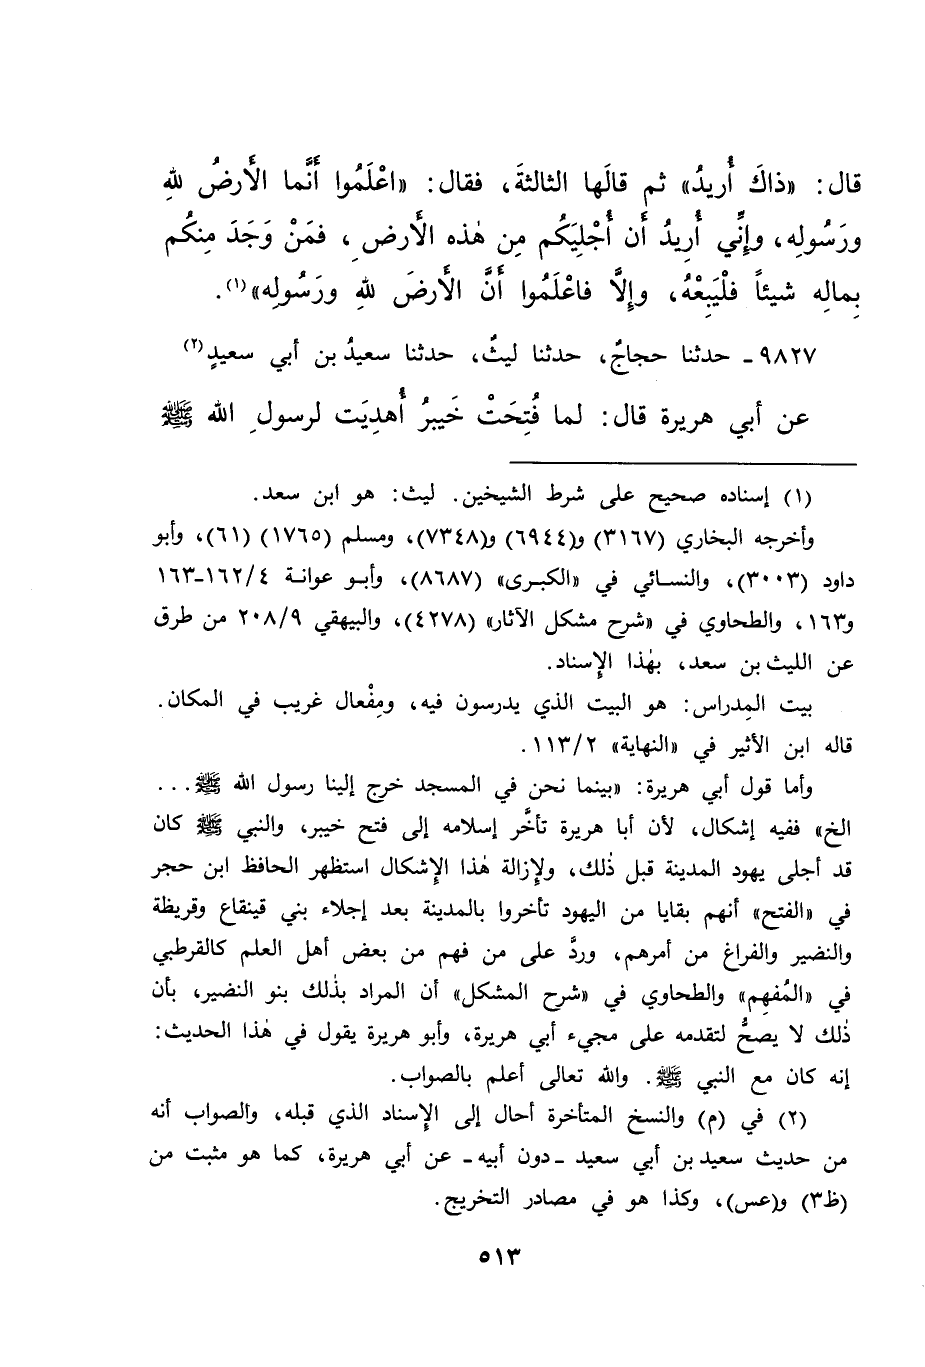 قال: «ذاكَ أُريدُ» ثم قالَها الثالثةَ، فقال: «اعْلَمُوا أَنَّما الأَرضُ للهِ
ورَسُولِه، وإنِّي أُريدُ أَن أُجْلِيَكُم مِن هٰذه الأَرضِ، فمَنْ وَجَدَ مِنكُم
بِمالِه شيئاً فلْيَبِعْهُ، وإلَّا فاعْلَمُوا أَنَّ الأَرضَ للهِ ورَسُولِه»(١).
٩٨٢٧- حدثنا حجاجٌ، حدثنا ليثٌ، حدثنا سعيدُ بن أبي سعيدٍ(٢)
عن أبي هريرة قال: لما فُتِحَتْ خَيبرُ أُهدِيَت لرسولِ الله ﷺ
(١) إسناده صحيح على شرط الشيخين. ليث: هو ابن سعد.
وأخرجه البخاري (٣١٦٧) و(٦٩٤٤) و(٧٣٤٨)، ومسلم (١٧٦٥) (٦١)، وأبو
داود (٣٠٠٣)، والنسائي في «الكبرى» (٨٦٨٧)، وأبو عوانة ١٦٢/٤-١٦٣
و١٦٣، والطحاوي في «شرح مشكل الآثار» (٤٢٧٨)، والبيهقي ٢٠٨/٩ من طرق
عن الليث بن سعد، بهٰذا الإسناد.
بيت المِدراس: هو البيت الذي يدرسون فيه، ومِفْعال غريب في المكان.
قاله ابن الأثير في «النهاية» ١١٣/٢.
وأما قول أبي هريرة: «بينما نحن في المسجد خرج إلينا رسول الله ﷺ...
الخ» ففيه إشكال، لأن أبا هريرة تأخَّر إسلامه إلى فتح خيبر، والنبي ﷺ كان
قد أجلى يهود المدينة قبل ذٰلك، ولإزالة هٰذا الإشكال استظهر الحافظ ابن حجر
في «الفتح» أنهم بقايا من اليهود تأخروا بالمدينة بعد إجلاء بني قينقاع وقريظة
والنضير والفراغ من أمرهم، وردَّ على من فهم من بعض أهل العلم كالقرطبي
في «المُفهِم» والطحاوي في «شرح المشكل» أن المراد بذٰلك بنو النضير، بأن
ذٰلك لا يصحُّ لتقدمه على مجيء أبي هريرة، وأبو هريرة يقول في هٰذا الحديث:
إنه كان مع النبي ﷺ. والله تعالى أعلم بالصواب.
(٢) في (م) والنسخ المتأخرة أحال إلى الإسناد الذي قبله، والصواب أنه
من حديث سعيد بن أبي سعيد -دون أبيه- عن أبي هريرة، كما هو مثبت من
(ظ٣) و(عس)، وكذا هو في مصادر التخريج.
٥١٣